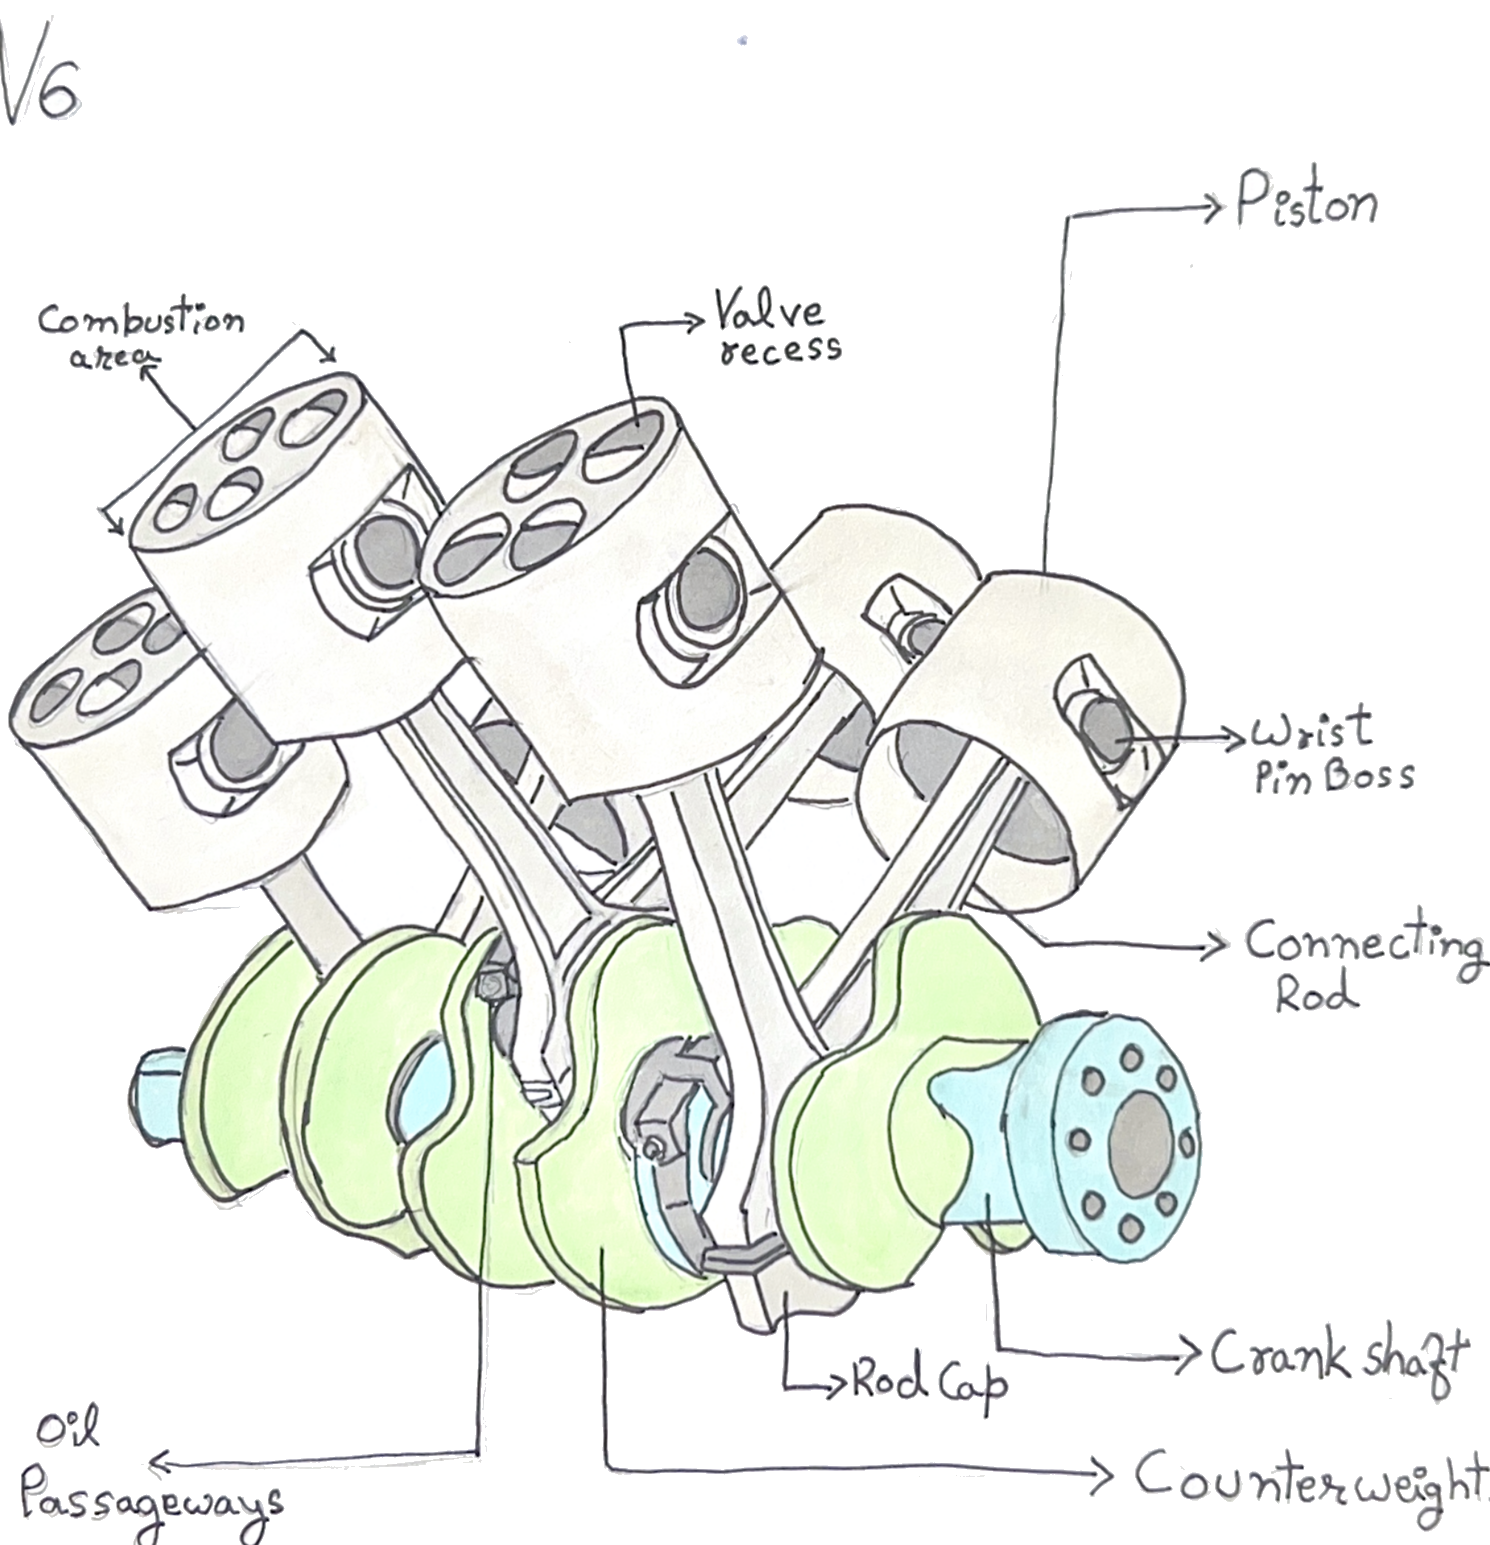 V6
Piston
Combustion
area
Valve
recess
Wrist
Pin Boss
Connecting
Rod
Crank shaft
Rod Cap
Oil
Passageways
Counterweight